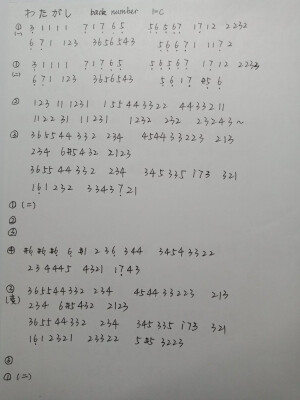 わたがし back number in C
① 3 1 1 1 1 7 1 7 6 5 5 6 5 6 7 1 7 1 2 2 2 3 2
(一) 6 7 1 1 2 3 3 6 5 6 5 4 3 5 6 6 7 1 1 1 7 2
① 3 1 1 1 1 7 1 7 6 5 5 6 5 6 7 1 7 1 2 2 2 3 2
(二) 6 7 1 1 2 3 3 6 5 6 5 4 3 5 6 1 7 #5 6
② 1 2 3 1 1 1 1 2 3 1 1 5 5 4 4 3 3 2 2 4 4 3 3 2 1 1
1 1 2 2 3 1 1 1 2 3 1 1 2 3 2 2 3 2 2 3 2 4 3 ~
③ 3 6 5 5 4 4 3 3 2 2 3 4 4 5 4 4 3 3 2 2 3 2 1 3
2 3 4 6 #5 4 3 2 2 1 2 3
3 6 5 5 4 4 3 3 2 2 3 4 3 4 5 3 3 5 1 7 3 3 2 1
1 6 1 2 3 2 3 3 4 3 7 2 1
① (二)
②
③
④ #6 #6 #6 6 #1 2 3 6 3 4 4 3 4 5 4 3 3 2 2
2 3 4 4 4 5 4 3 2 1 1 7 4 3
③ 3 6 5 5 4 4 3 3 2 2 3 4 4 5 4 4 3 3 2 2 3 2 1 3
(变) 2 3 4 6 #5 4 3 2 2 1 2 3
3 6 5 5 4 4 3 3 2 2 3 4 3 4 5 3 3 5 1 7 3 3 2 1
1 6 1 2 3 2 1 2 3 3 2 2 5 #5 3 2 2 3
③
① (二)